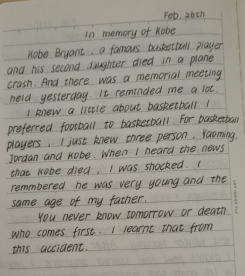 Feb. 26th
In memory of Kobe
Kobe Bryant, a famous basketball player
and his second daughter died in a plane
crash. And there was a memorial meeting
held yesterday. It reminded me a lot.
I knew a little about basketball. I
preferred football to basketball. For basketball
players, I just knew three person, Yaoming,
Jordan and Kobe. When I heard the news
that Kobe died, I was shocked. I
remmbered he was very young and the
same age of my father.
You never know tomorrow or death
who comes first. I learnt that from
this accident.